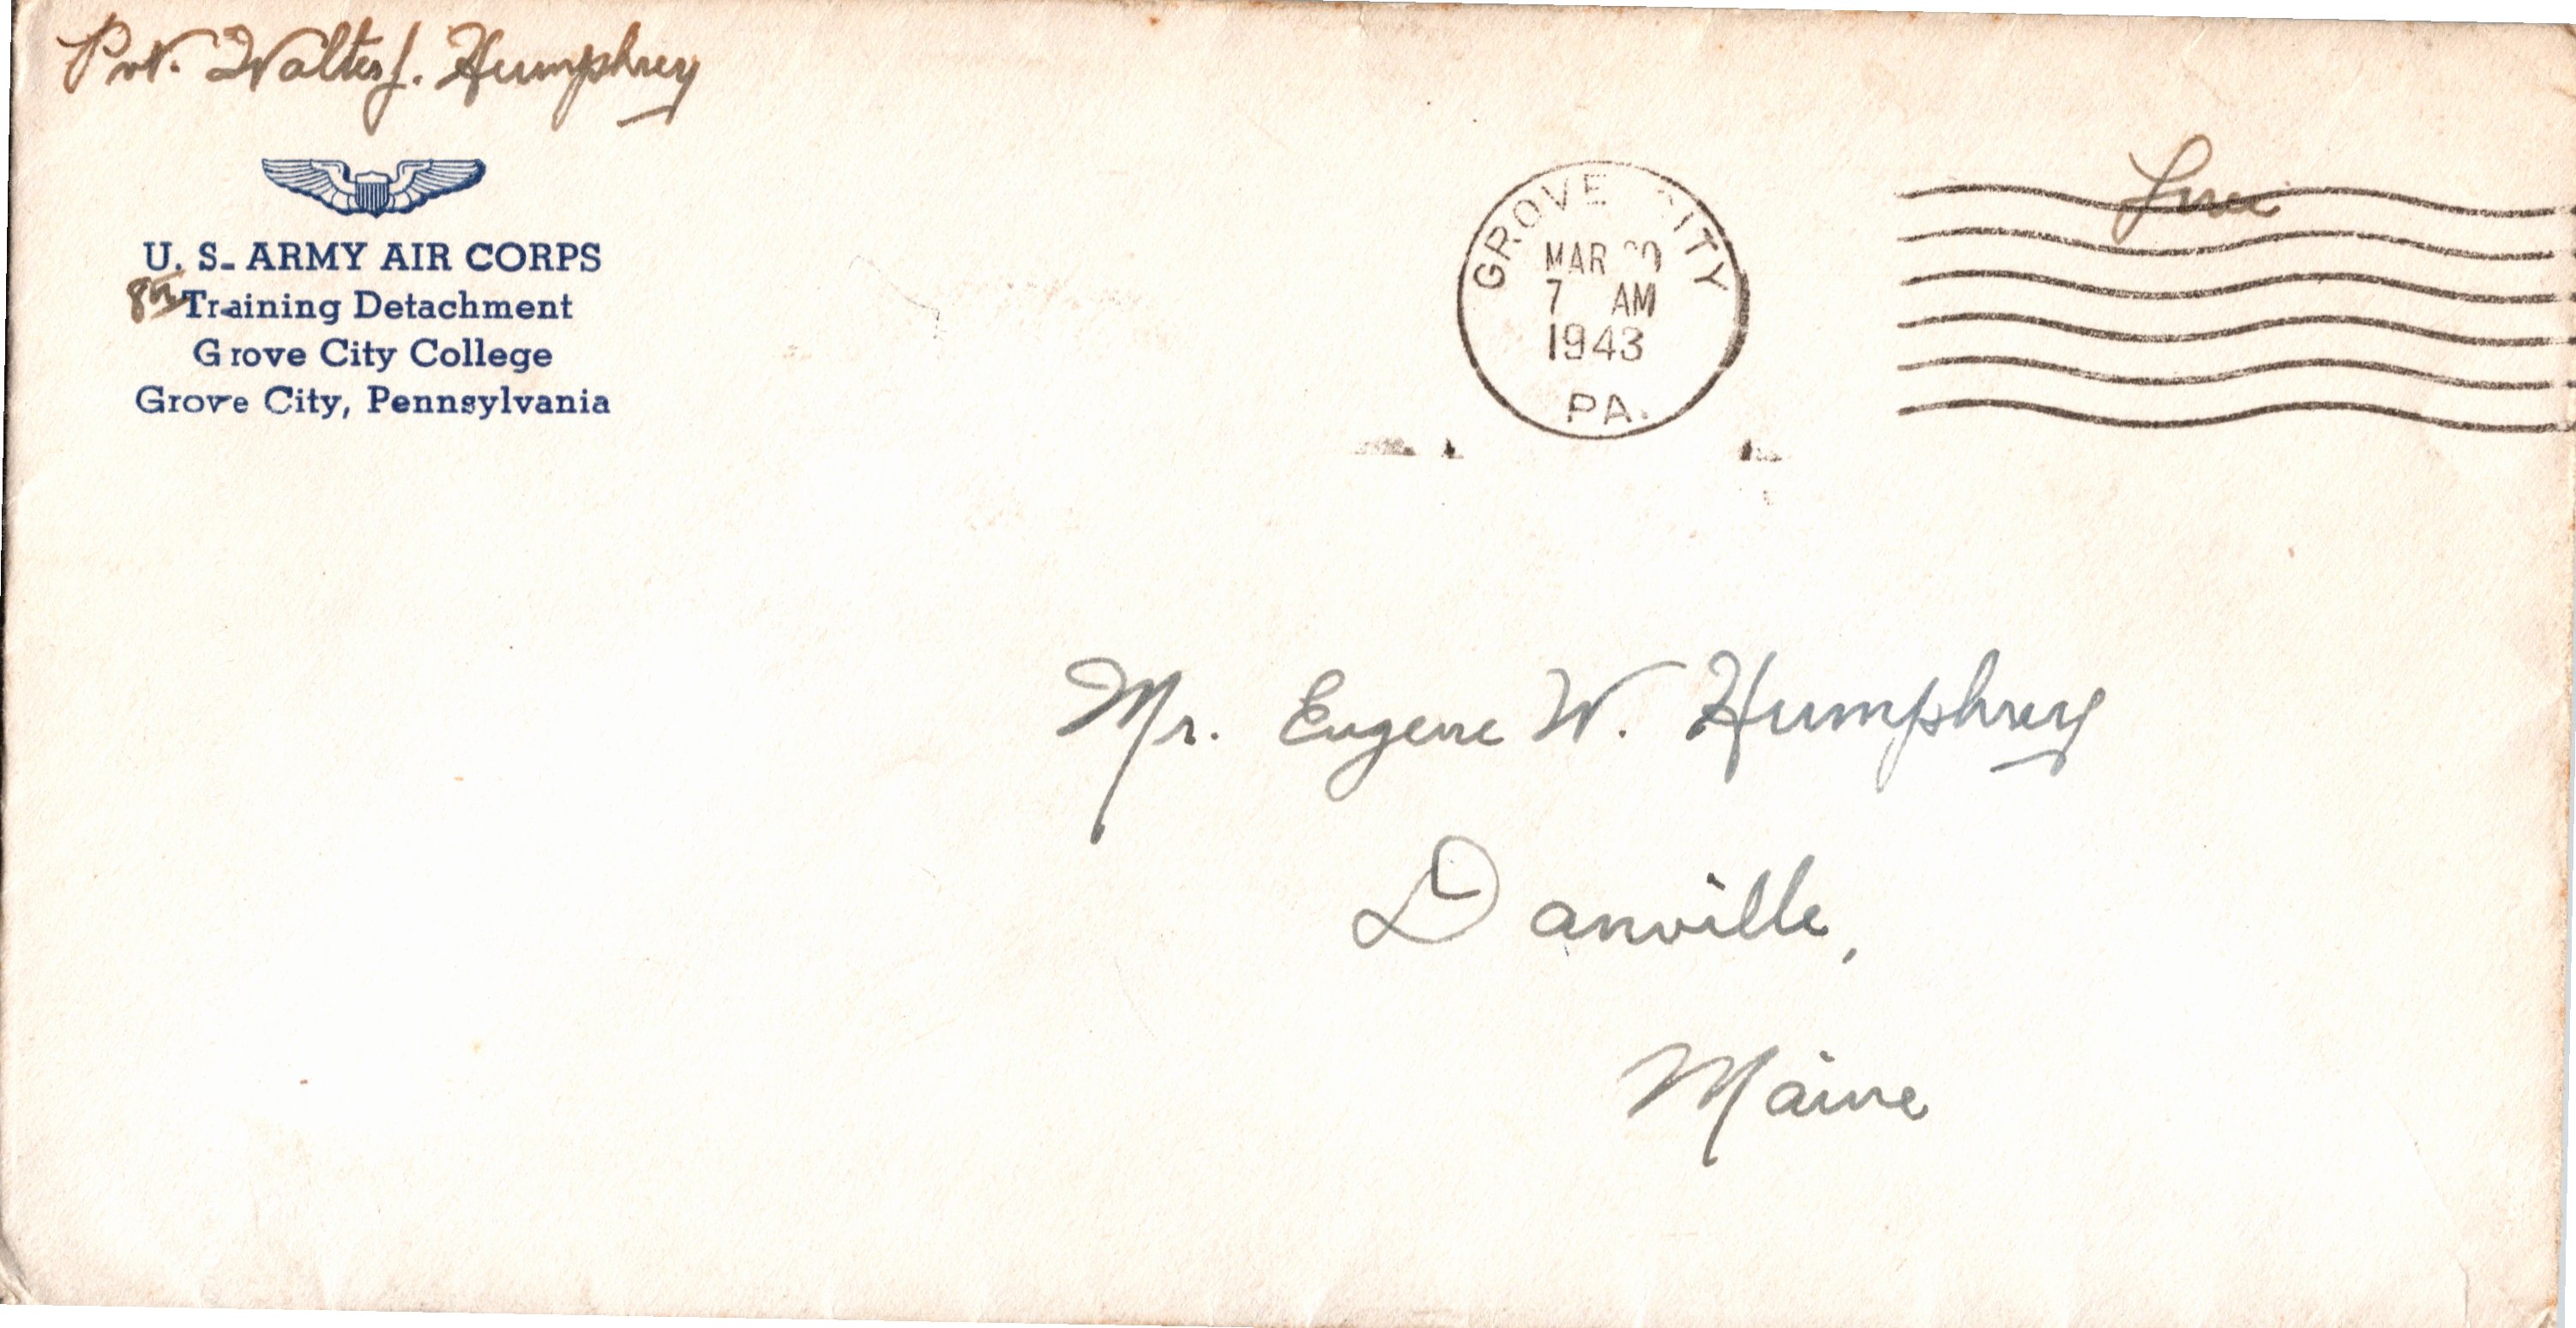 Pvt. Walter J. Humphrey
U. S. ARMY AIR CORPS
8th Training Detachment
Grove City College
Grove City, Pennsylvania
GROVE CITY
MAR
7 AM
1943
PA.
Free
Mr. Eugene W. Humphrey
Danville,
Maine